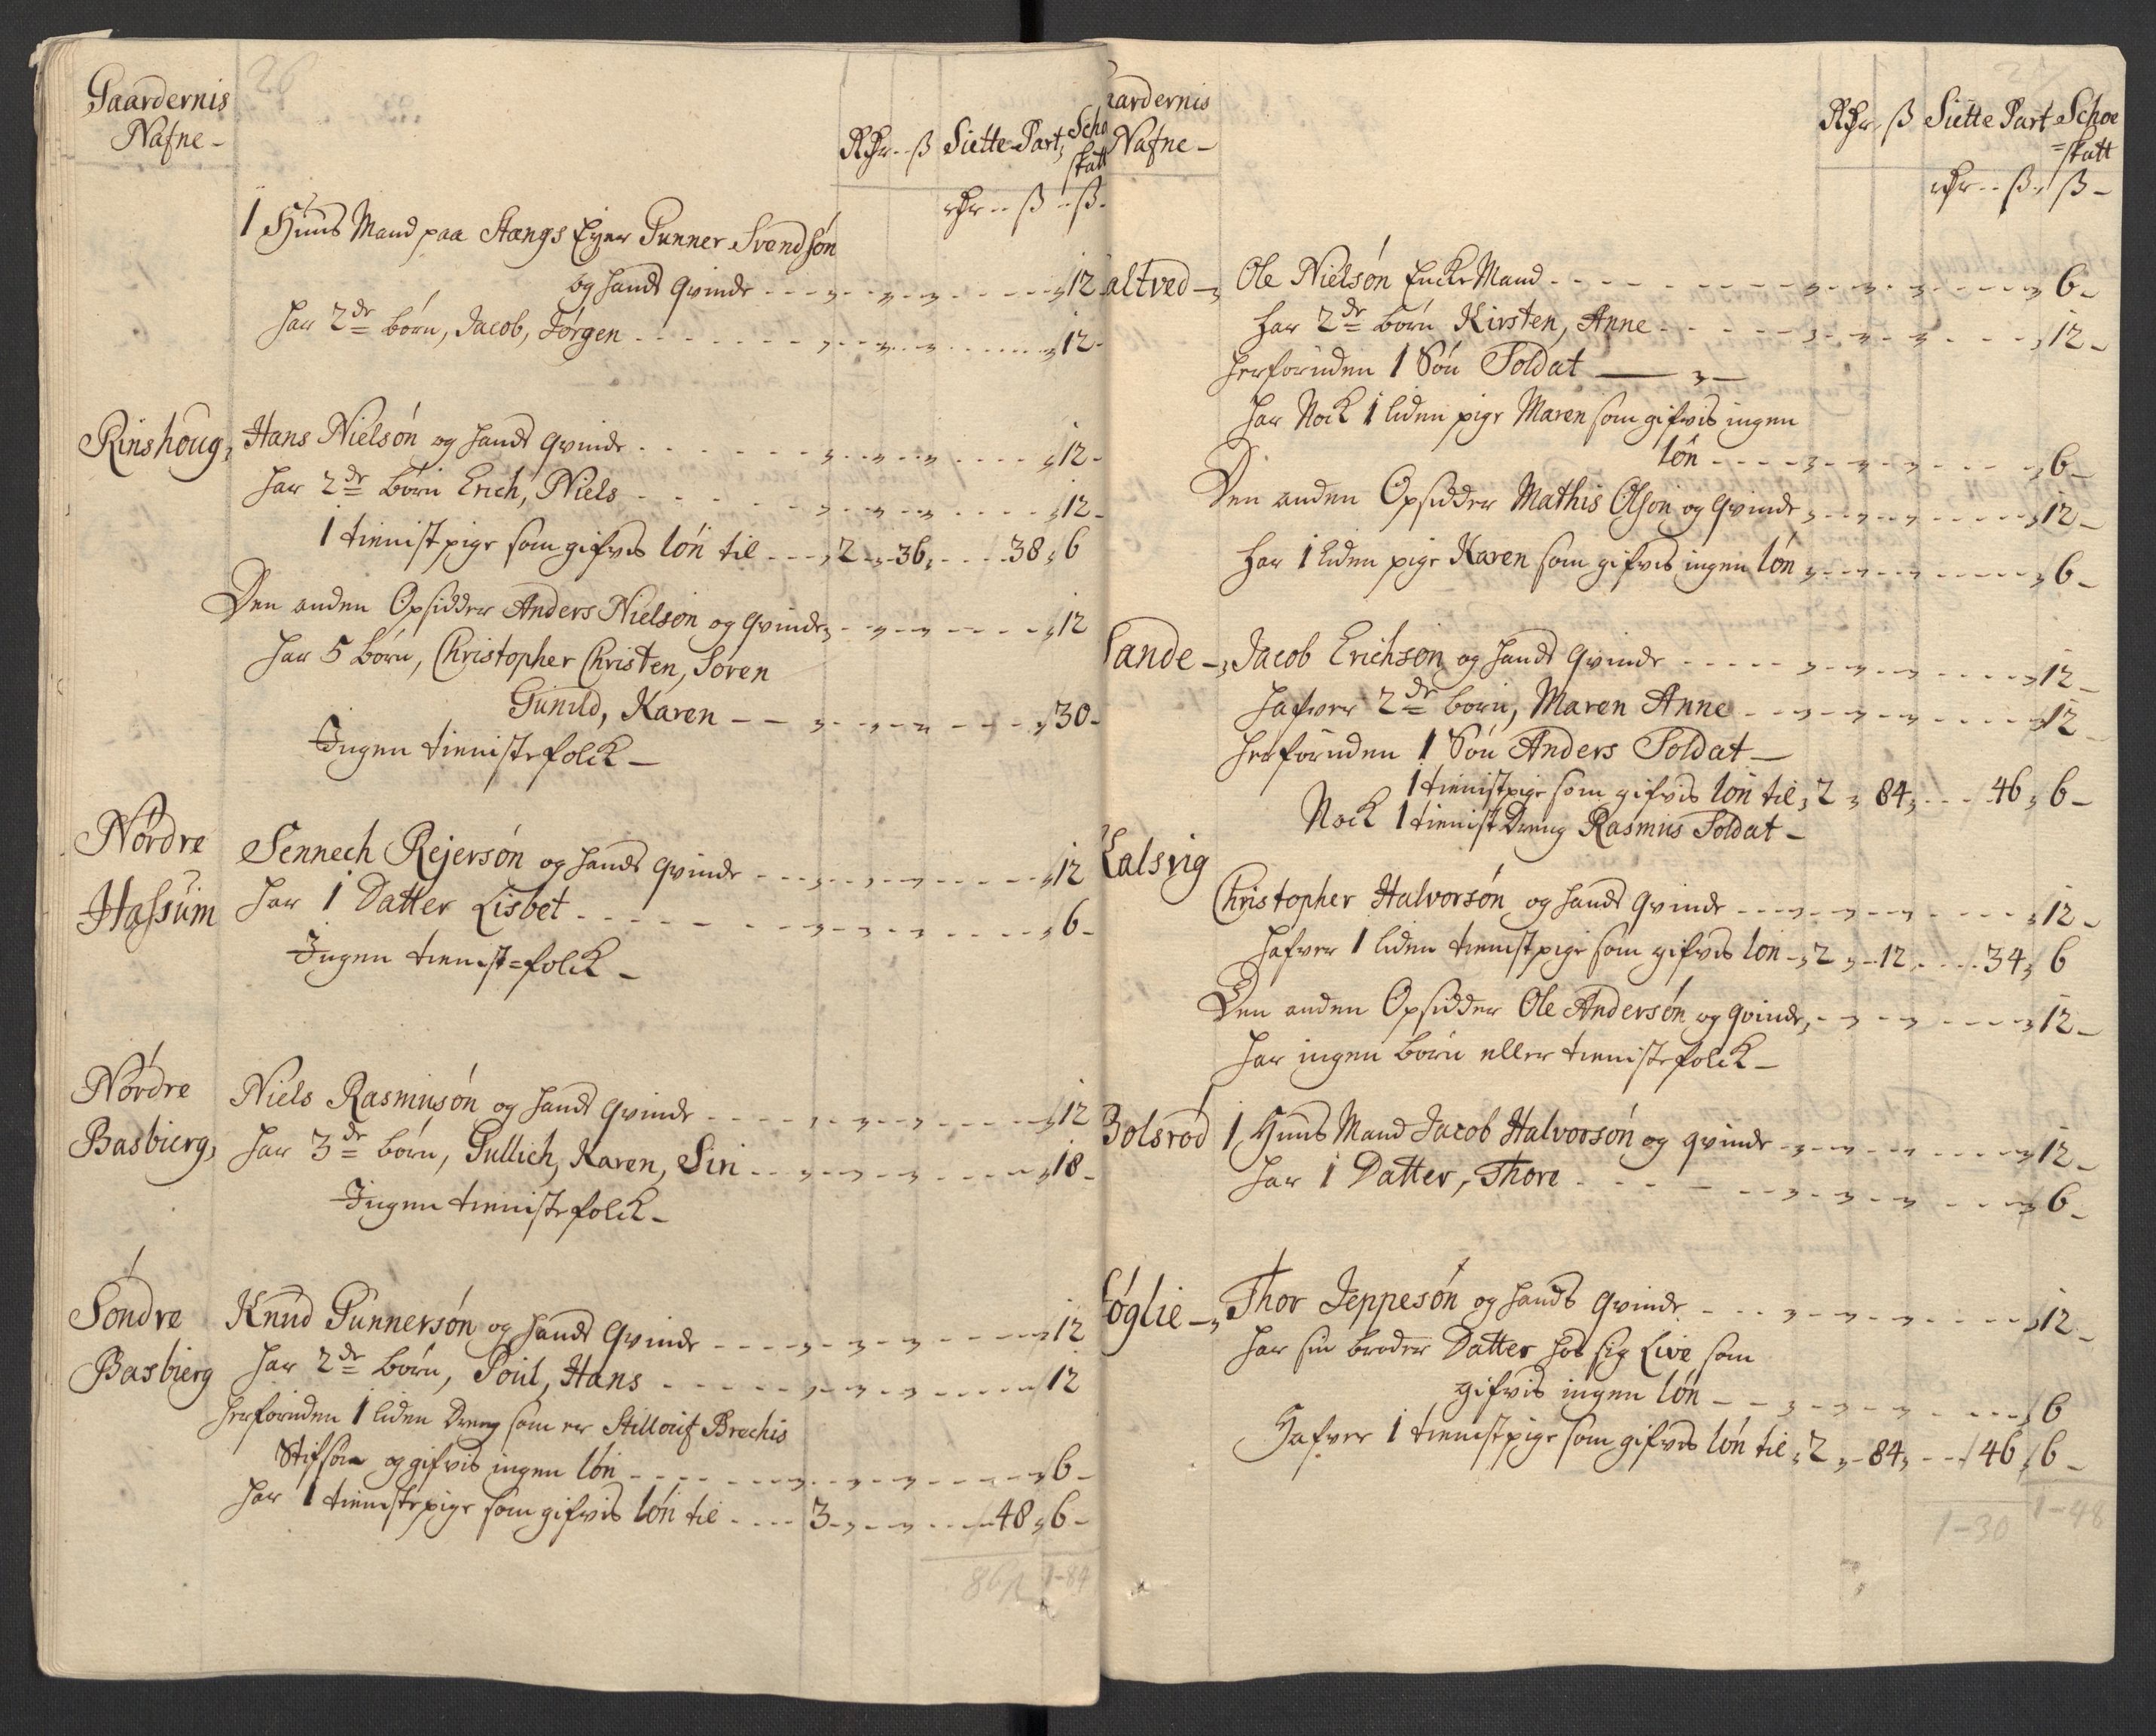 26
Gaardernis
Nafne -
Rdr ß Siette Part, Scho
skatt
rdr ß ß
1 Huus Mand paa Stangs Eyer Gunner Svendsøn
og hands qvinde 12
har 2de børn, Jacob, Jørgen 12
Rinshoug, Hans Nielsøn og hands qvinde 12
har 2de børn Erich, Niels 12
1 tienist pige som gifvis løn til 2 36 38 6
Den anden Opsidder Anders Nielsøn og qvinde 12
har 5 børn, Christopher Christen, Soren
Gunild, Karen 30
Ingen tienistefolck -
Nordre Sennech Rejersøn og hands qvinde 12
Hassum har 1 Datter Lisbet 6
Ingen tienist=folck -
Nordre Niels Rasmusøn og hands qvinde 12
Basbierg, har 3de børn, Gullich, Karen, Siri 18
Ingen tienistefolck -
Søndre Knud Gunnersøn og hands qvinde 12
Basbierg har 2de børn, Poul, Hans 12
herforuden 1 liden dreng som er Brechis
Stifsøn og gifvis ingen løn 6
har 1 tienistepige som gifvis løn til 3 48 6
86ß 1-84
aardernis
Nafne -
Rdr ß Siette Part Schoe
=skatt
rdr ß ß
altved - Ole Nielsøn Encke Mand 6
har 2de børn Kirsten, Anne 12
herforuden 1 Søn Soldat
har Nock 1 liden pige Maren som gifvis ingen
løn 6
Den anden Opsidder Mathis Olson og qvinde 12
har 1 liden pige Karen som gifvis ingen løn 6
Sande - Jacob Erichsøn og hands qvinde 12
hafver 2de børn, Maren Anne 12
herforuden 1 Søn Anders Soldat -
1 tienistpige som gifvis løn til 2 84 46 6
Nock 1 tienist Dreng Rasmus Soldat -
alsvig
Christopher Halvorsøn og hands qvinde 12
hafver 1 liden tienistpige som gifvis løn 2 12 34 6
Den anden Opsidder Ole Andersøn og qvinde 12
har ingen børn eller tienistefolck -
Bolsrød 1 Huus Mand Jacob Halvorsøn og qvinde 12
har 1 Datter, Thore 6
øglie - Thor Jeppesøn og hands qvinde 12
har sin broder Datter hos sig Live som
gifvis ingen løn 6
Hafver 1 tienistpige som gifvis løn til 2 84 46 6
1-30 1-48